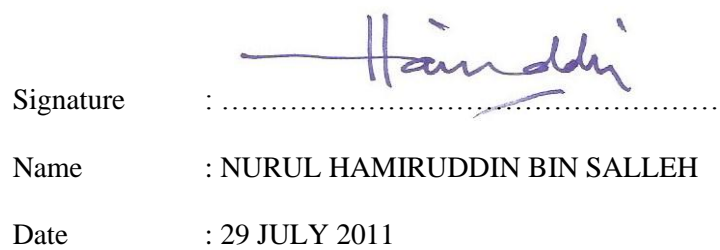 Hamirddin
Signature : ……………………………………………
Name : NURUL HAMIRUDDIN BIN SALLEH
Date : 29 JULY 2011